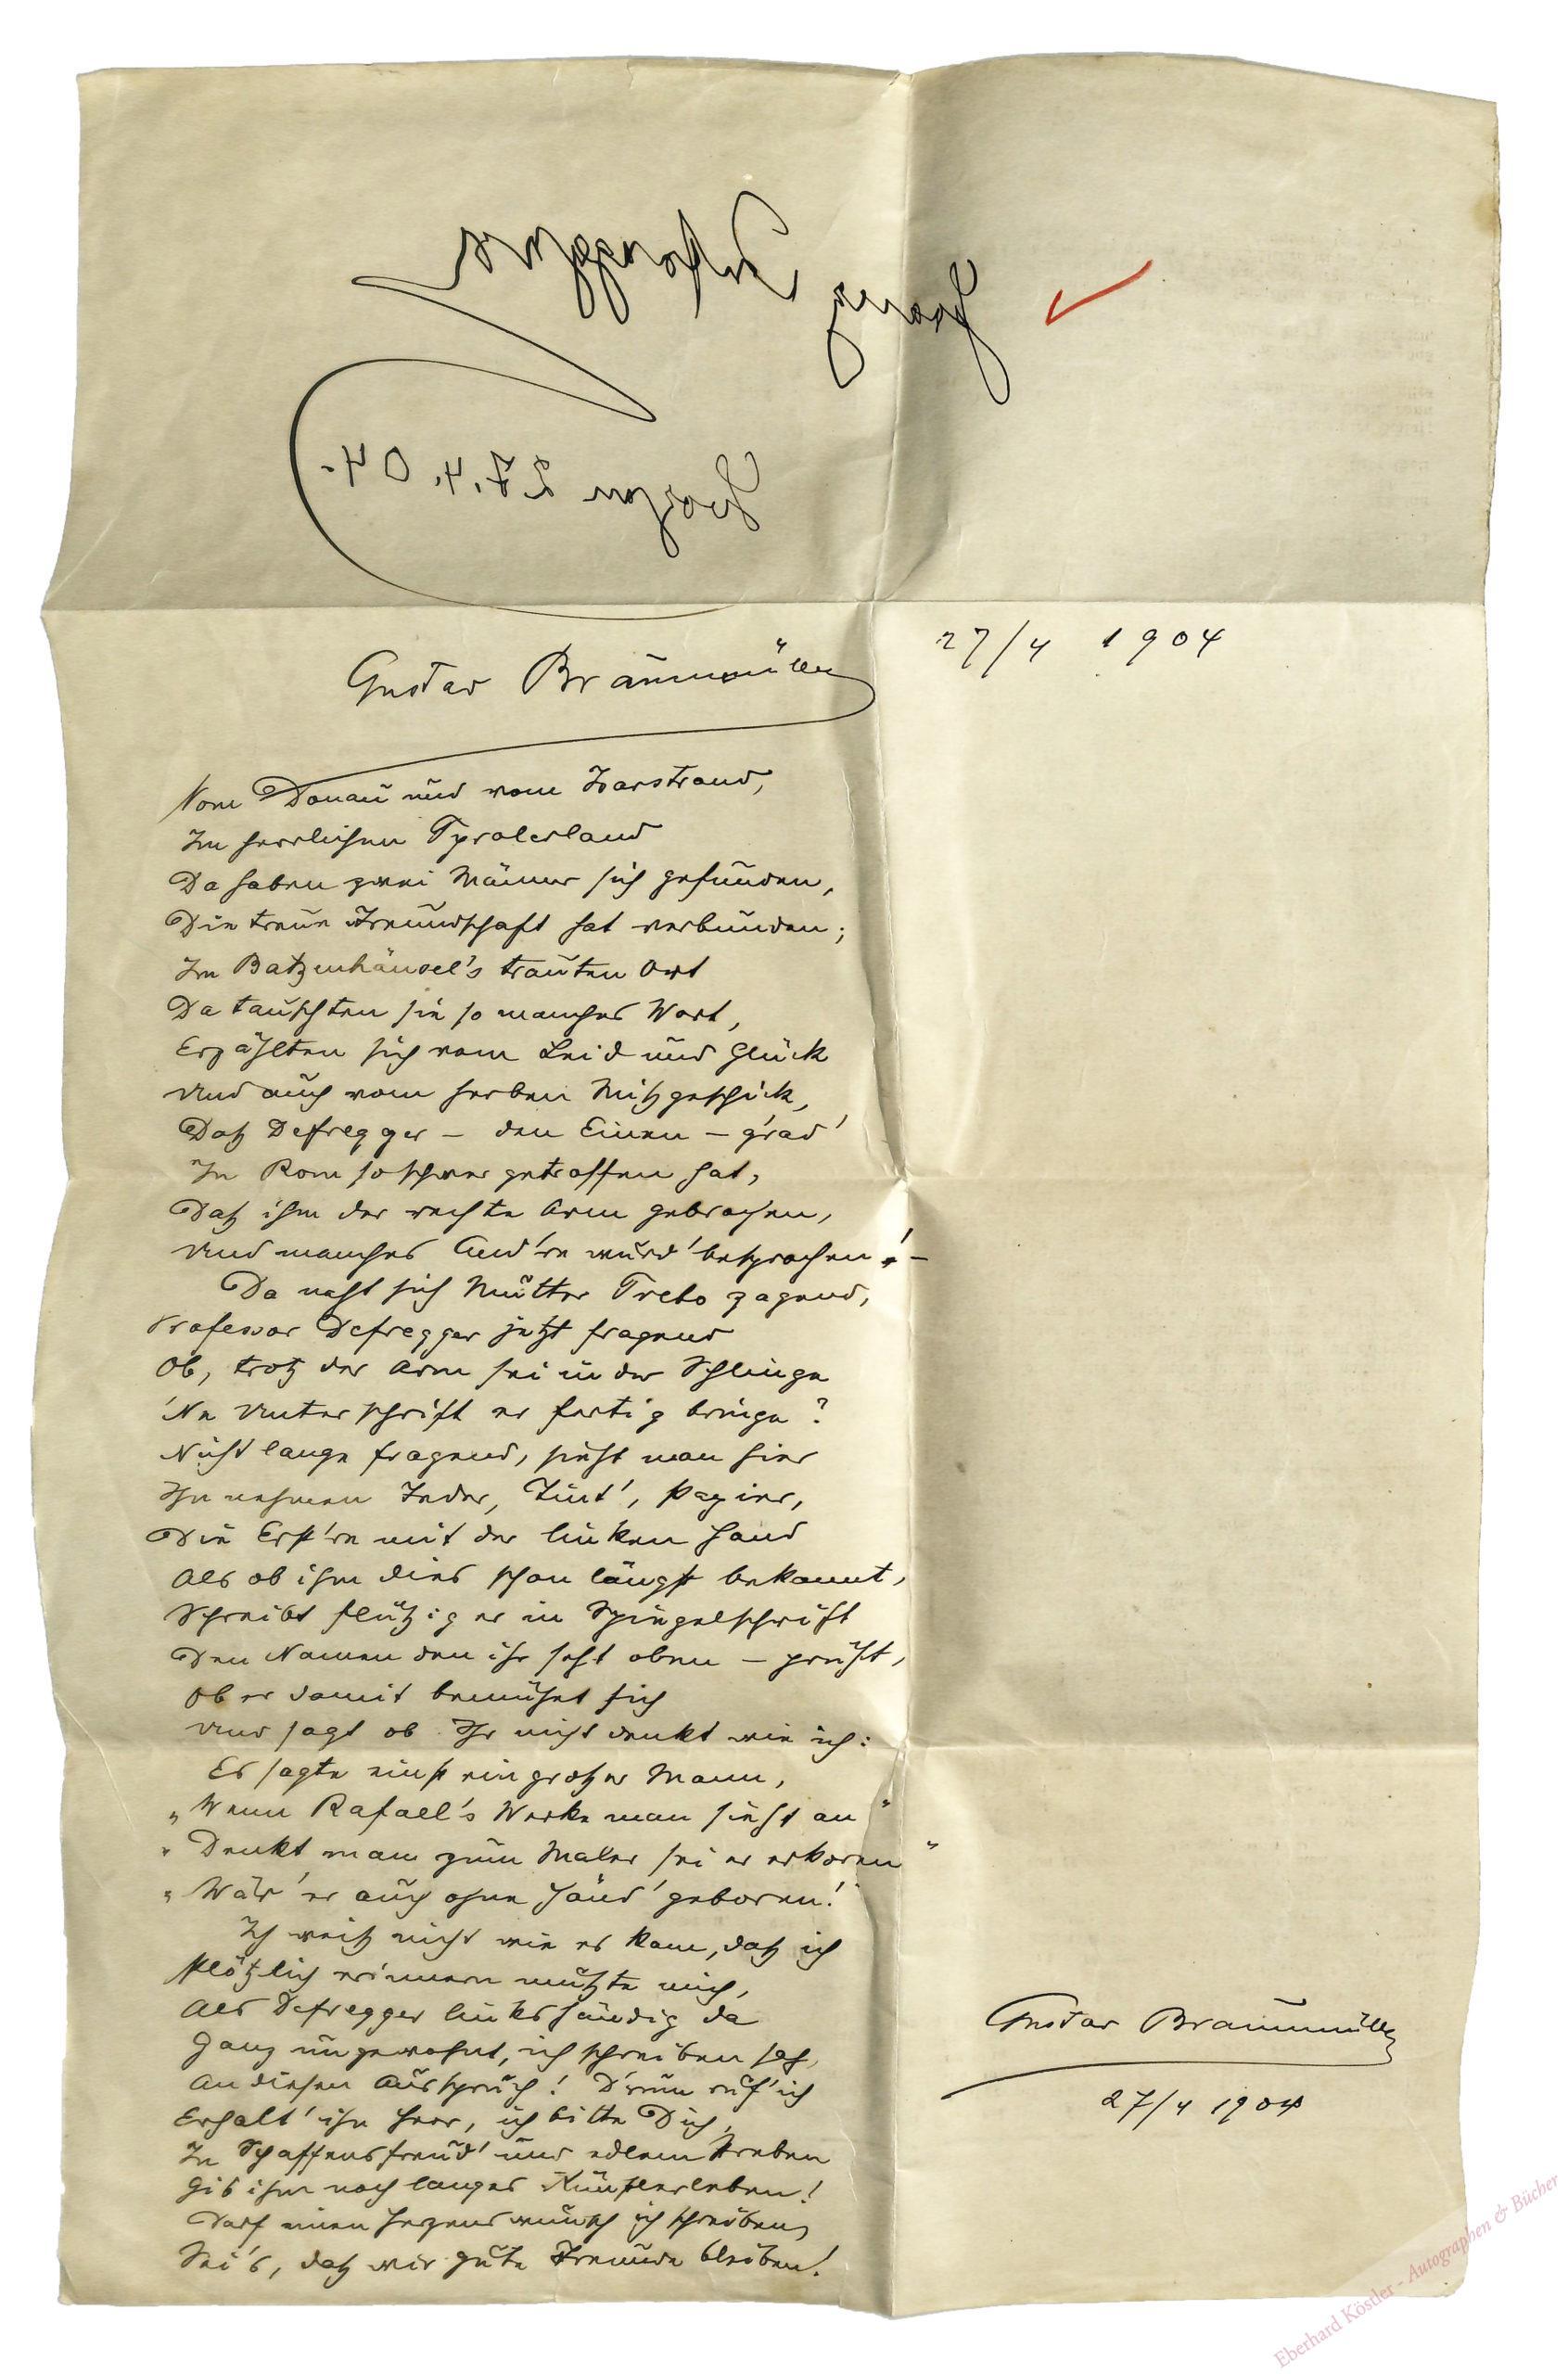 Franz Defregger
Bozen 27.4.04.
Gustav Braunmüller
27/4 1904
Vom Donau und vom Isarstrand,
Im herrlichen Tyrolerland
Da haben zwei Männer sich gefunden,
Die treue Freundschaft hat verbunden;
Im Batzenhäusel's trauten Ort
Da tauschten sie so manches Wort,
Erzählten sich vom Leid und Glück
Und auch vom herben Mißgeschick,
Daß Defregger – den Einen – g'rad'
In Rom so schwer getroffen hat,
Daß ihm der rechte Arm gebrochen,
Und manches And're wurd' besprochen! –
Da naht sich Mutter Trebo zagend,
Professor Defregger jetzt fragend
Ob, trotz der Arm sei in der Schlinge
'Ne Unterschrift er fertig bringe?
Nicht lange fragend, sieht man hier
Ihn nehmen Feder, Tint', Papier,
Die Erst're mit der linken Hand
Als ob ihm dies schon längst bekannt,
Schreibt flützig er in Spiegelschrift
Den Namen den ihr seht oben – prüft,
Ob er damit bemühet sich
Und sagt ob Ihr nicht denkt wie ich:
Es sagte einst ein großer Mann,
„Wenn Rafael's Werke man sieht an"
„Denkt man zum Maler sei er erkoren"
„Wär' er auch ohne Händ' geboren!"
Ich weiß nicht wie es kam, daß ich
Plötzlich erinnern mußte mich,
Als Defregger linkshändig da
Ganz ungewohnt, ich schreiben sah,
An diesen Ausspruch! D'rum ruf' ich
Erhalt' ihn Herr, ich bitte Dich,
In Schaffensfreud' und edlem Streben
Gib ihm noch langes Künstlerleben!
Darf einen Herzenswunsch ich schreiben,
Sei's, daß wir gute Freunde bleiben!
Gustav Braunmüller
27/4 1904
Eberhard Köstler - Autographen & Bücher